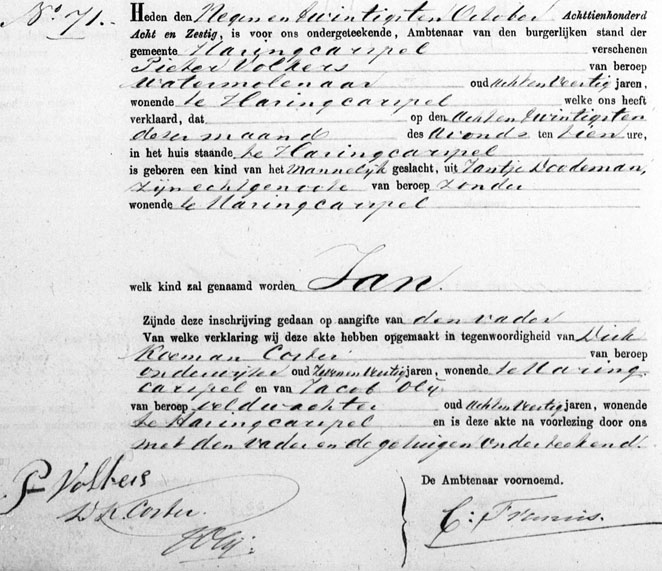 No. 71.
Heden den Negen en Twintigsten October Achttienhonderd
Acht en Zestig, is voor ons ondergeteekende, Ambtenaar van den burgerlijken stand der
gemeente Haringcarspel verschenen
Pieter Volkers van beroep
Watermolenaar oud Acht en Veertig jaren,
wonende te Haringcarspel welke ons heeft
verklaard, dat op den Acht en Twintigsten
dezer maand des Avonds ten tien ure,
in het huis staande te Haringcarspel
is geboren een kind van het Mannelijk geslacht, uit Jantje Doodeman,
zijn echtgenoote van beroep zonder
wonende te Haringcarspel
welk kind zal genaamd worden Jan.
Zijnde deze inschrijving gedaan op aangifte van den vader
Van welke verklaring wij deze akte hebben opgemaakt in tegenwoordigheid van Dirk
Koeman Coster van beroep
onderwijzer oud Zevenen Veertig jaren, wonende te Haring-
carspel en van Jacob Olij
van beroep veldwachter oud Acht en Veertig jaren, wonende
te Haringcarspel en is deze akte na voorlezing door ons
met den vader en de getuigen onderteekend.
P Volkers
D. K. Coster.
J Olij.
De Ambtenaar voornoemd.
C: Francis.